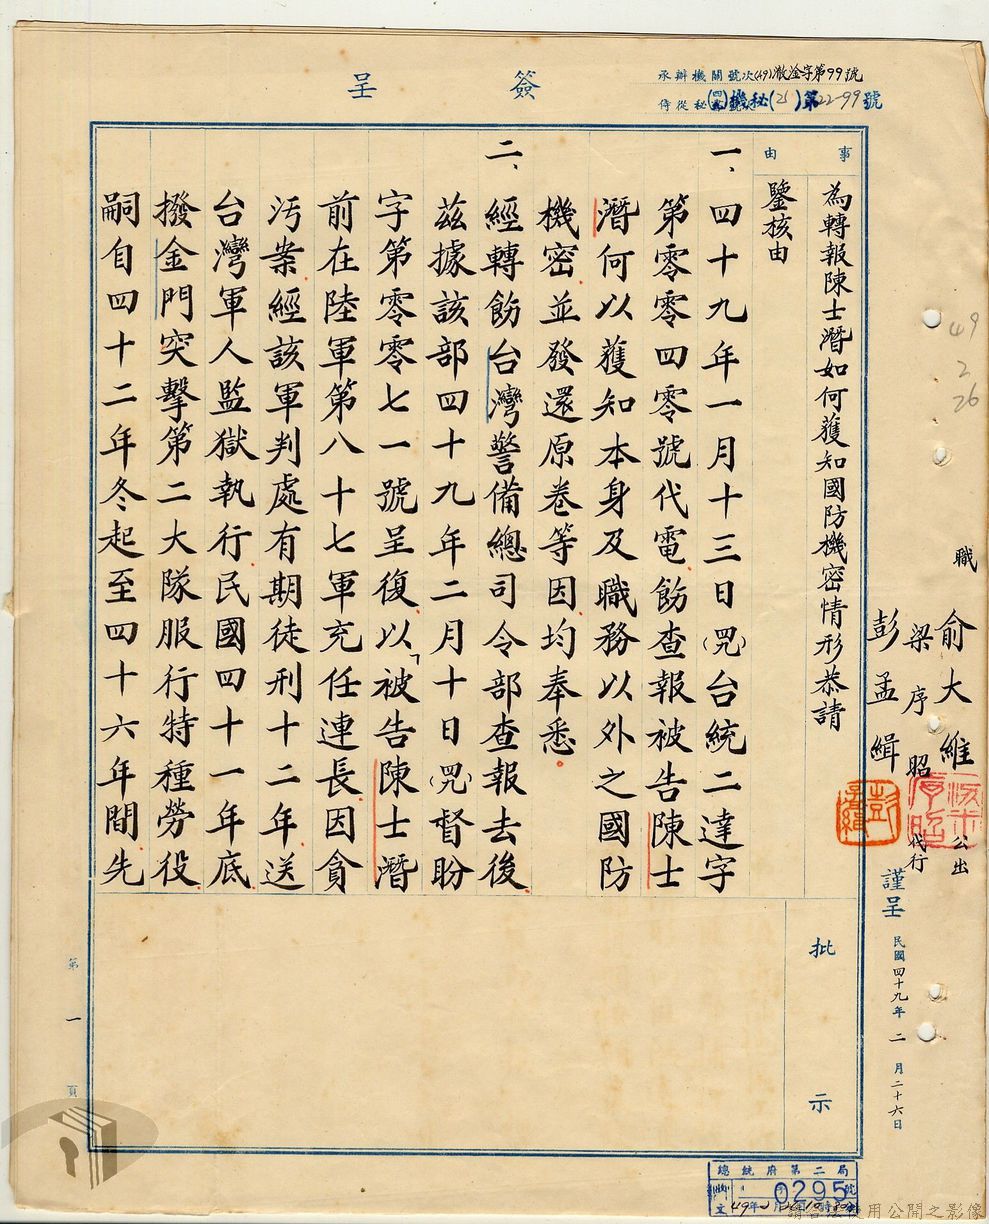 簽呈
承辦機關號次(49)澈淦字第99號
侍從秘書號次機秘(21)第22-99號
事由
為轉報陳士潛如何獲知國防機密情形恭請
鑒核由
一、四十九年一月十三日(四九)台統二達字
第零零四零號代電飭查報被告陳士
潛何以獲知本身及職務以外之國防
機密並發還原卷等因均奉悉。
二、經轉飭台灣警備總司令部查報去後
茲據該部四十九年二月十日(四九)督盼
字第零零七一號呈復以「被告陳士潛
前在陸軍第八十七軍充任連長因貪
污案經該軍判處有期徒刑十二年送
台灣軍人監獄執行民國四十一年底
撥金門突擊第二大隊服行特種勞役
嗣自四十二年冬起至四十六年間先
批示
職
俞大維公出
梁序昭代行
彭孟緝
謹呈
民國四十九年二月二十六日
49
2
26
第一頁
總統府第二局
收文
0295號
49年